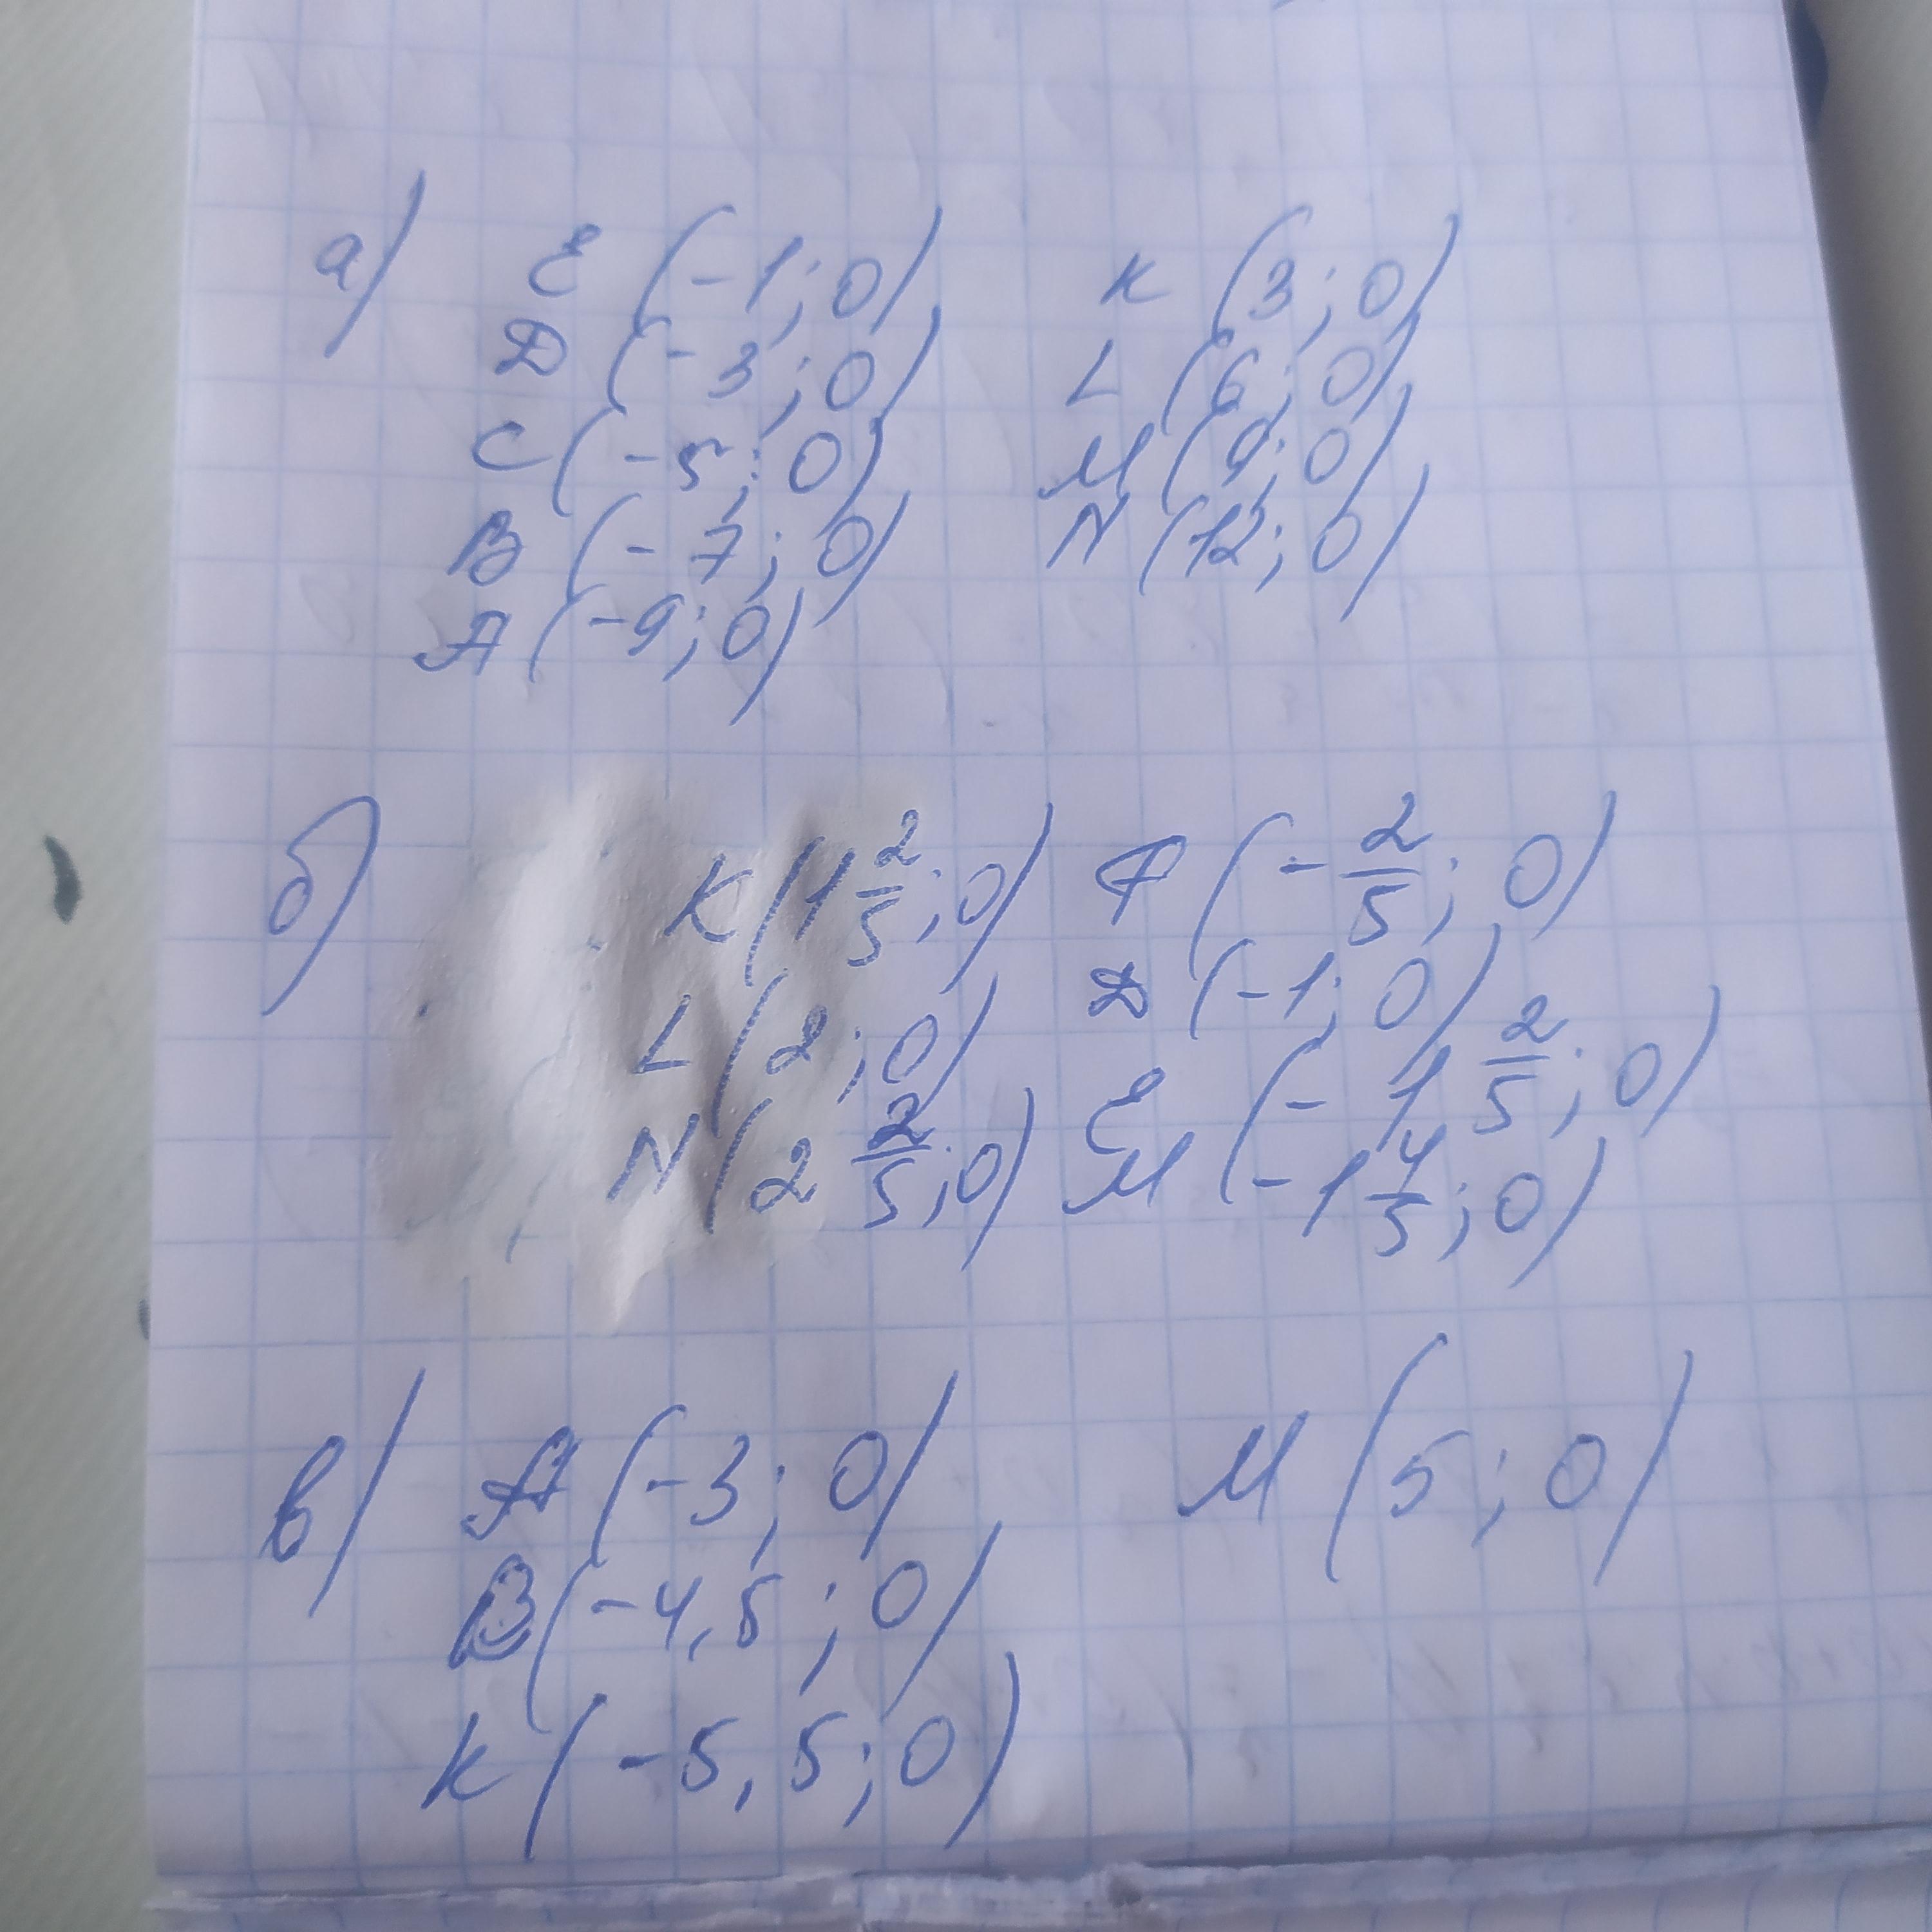 а) E (-1; 0) K (3; 0)
D (-3; 0) L (6; 0)
C (-5; 0) M (9; 0)
B (-7; 0) N (12; 0)
A (-9; 0)
б) K (1 2/5; 0) F (- 2/5; 0)
L (2; 0) D (-1; 0)
N (2 2/5; 0) E (- 1 2/5; 0)
M (-1 4/5; 0)
в) A (-3; 0) M (5; 0)
B (-4,5; 0)
K (-5,5; 0)